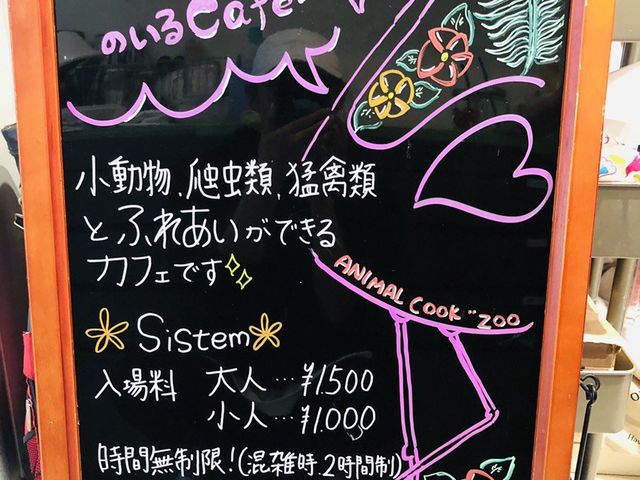 のいるCafe
小動物、爬虫類、猛禽類
とふれあいができる
カフェです
ANIMAL COOK "ZOO
Sistem
入場料 大人…¥1.500
小人…¥1.000
時間無制限！(混雑時.2時間制)